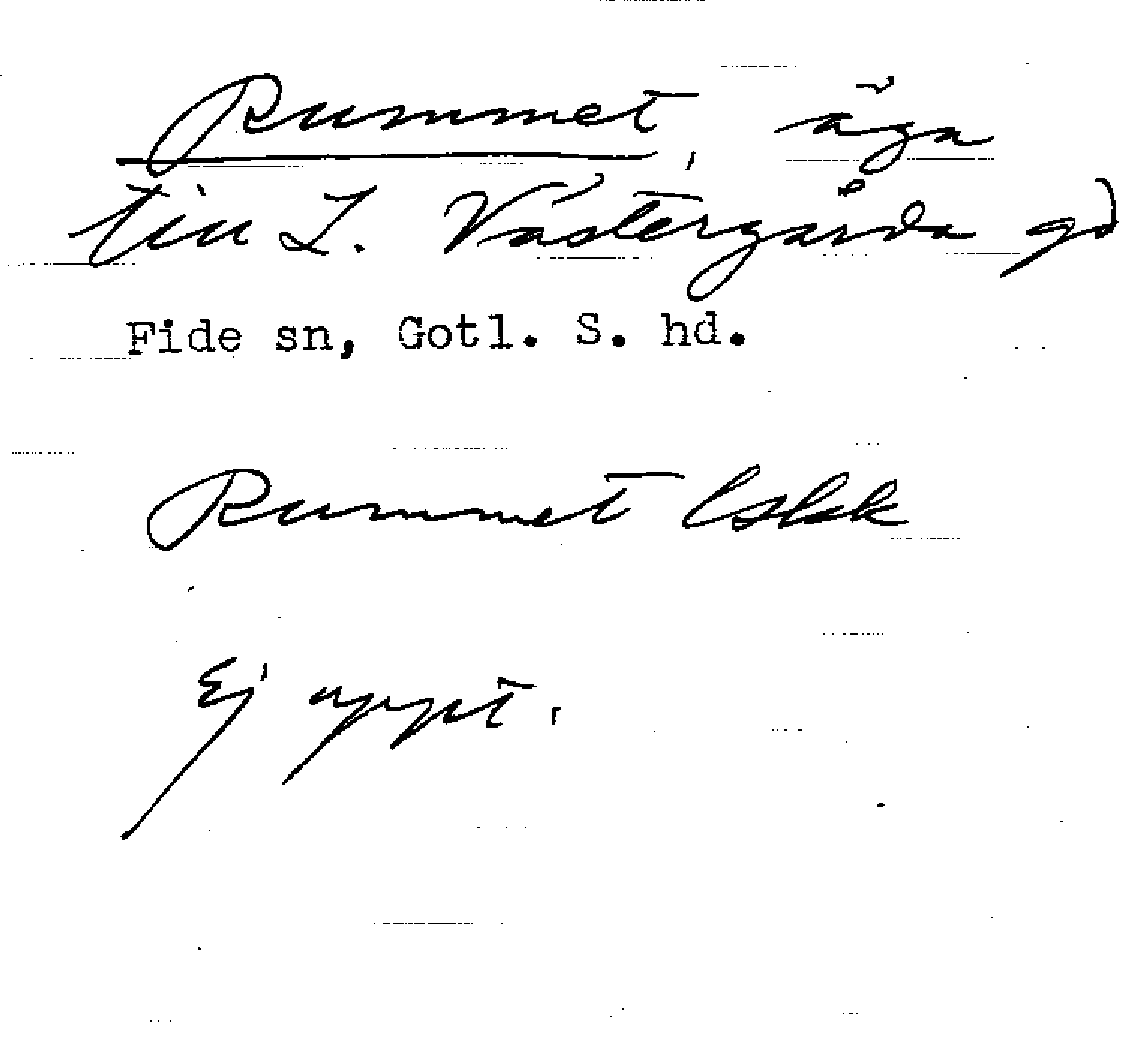 Rummet, äga
till L. Västergårda gd
Fide sn, Gotl. S. hd.
Rummet lskk
Ej uppt.